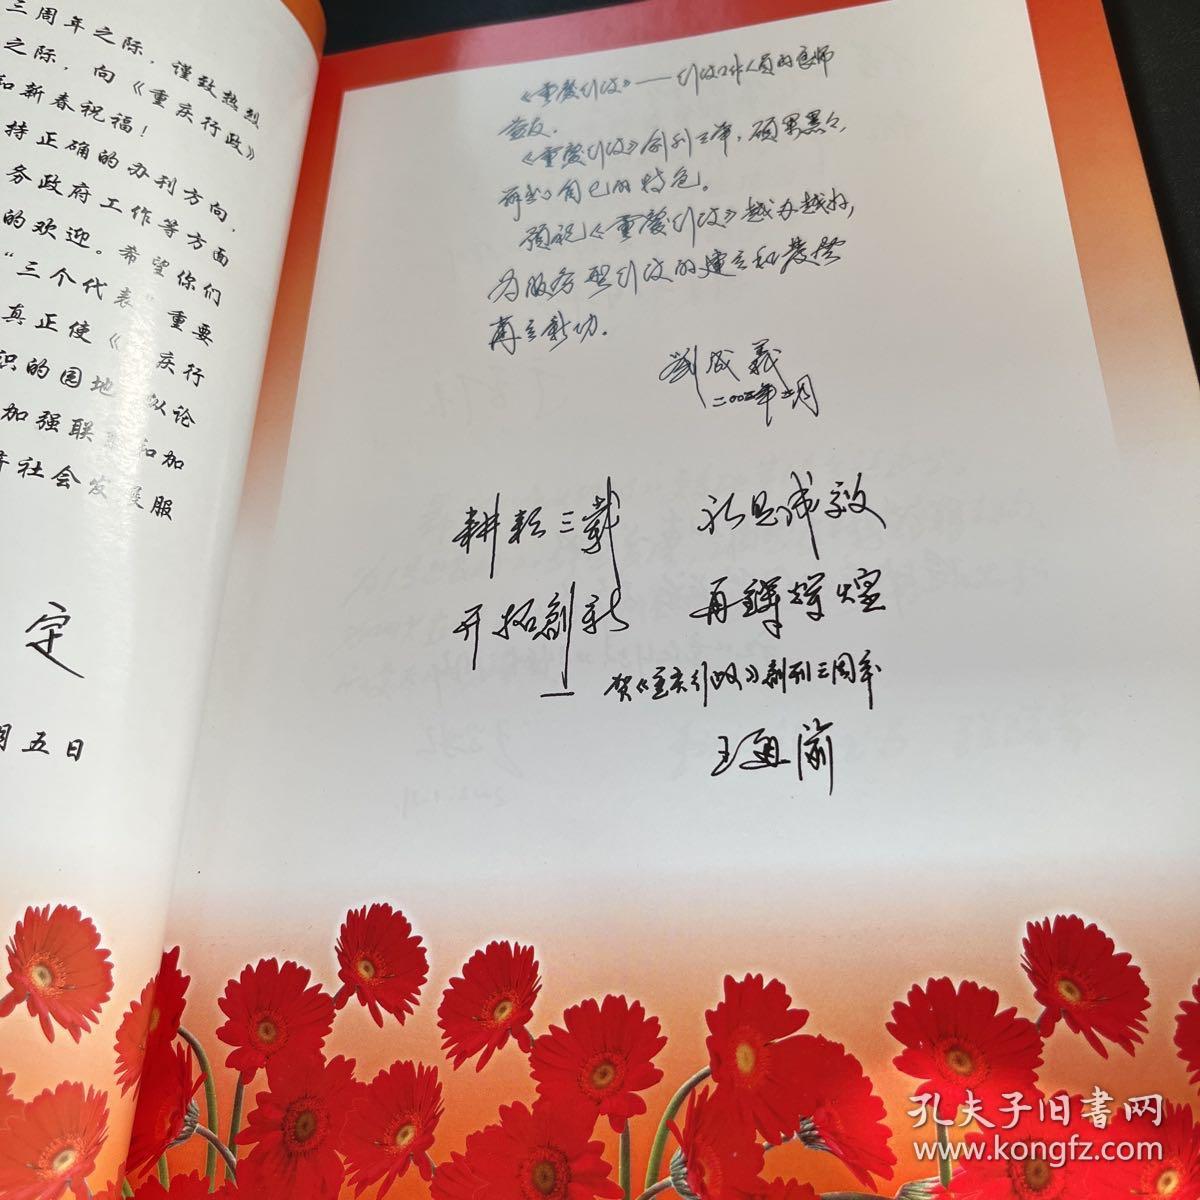 三周年之际，谨致热烈
之际，向《重庆行政》
和新春祝福！
持正确的办刊方向，
务政府工作等方面
的欢迎。希望你们
“三个代表”重要
真正使《 庆行
识的园地
加强联 和加
社会发展服
定
月五日
《重庆行政》——行政工作人员的良师
益友.
《重庆行政》创刊三年，硕果累々，
形成了自己的特色。
预祝《重庆行政》越办越好，
为服务型行政的建立和发展
再立新功。
刘成义
二00三年二月
耕耘三载
开拓创新 再铸辉煌
— 贺《重庆行政》创刊三周年
王通渝
孔夫子旧书网
www.kongfz.com